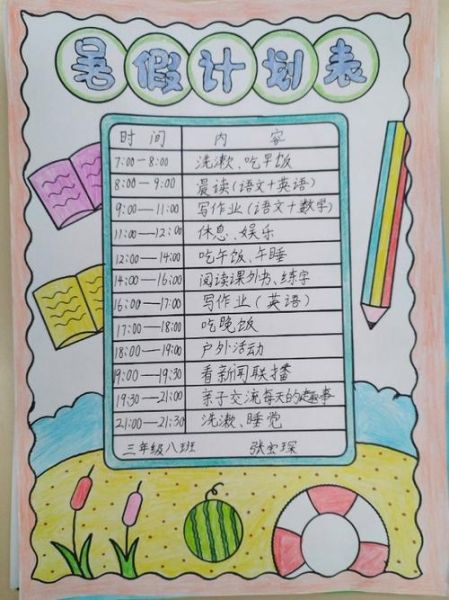 暑假计划表
时 间 内 容
7:00-8:00 洗漱、吃早饭
8:00-9:00 晨读(语文+英语)
9:00—11:00 写作业(语文+数学)
11:00—12:00 休息、娱乐
12:00—14:00 吃午饭、午睡
14:00—16:00 阅读课外书、练字
16:00—17:00 写作业(英语)
17:00—18:00 吃晚饭
18:00—19:00 户外活动
19:00—19:30 看新闻联播
19:30—21:00 亲子交流每天的趣事
21:00—21:30 洗漱、睡觉
三年级八班 张宝琛